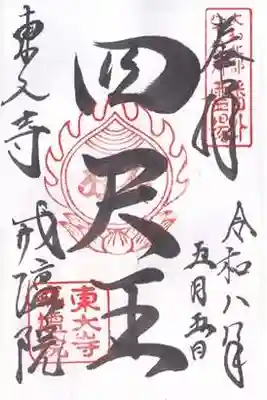 奉拝
令和八年
五月五日
四天王
東大寺 戒壇院
東大寺
戒壇院